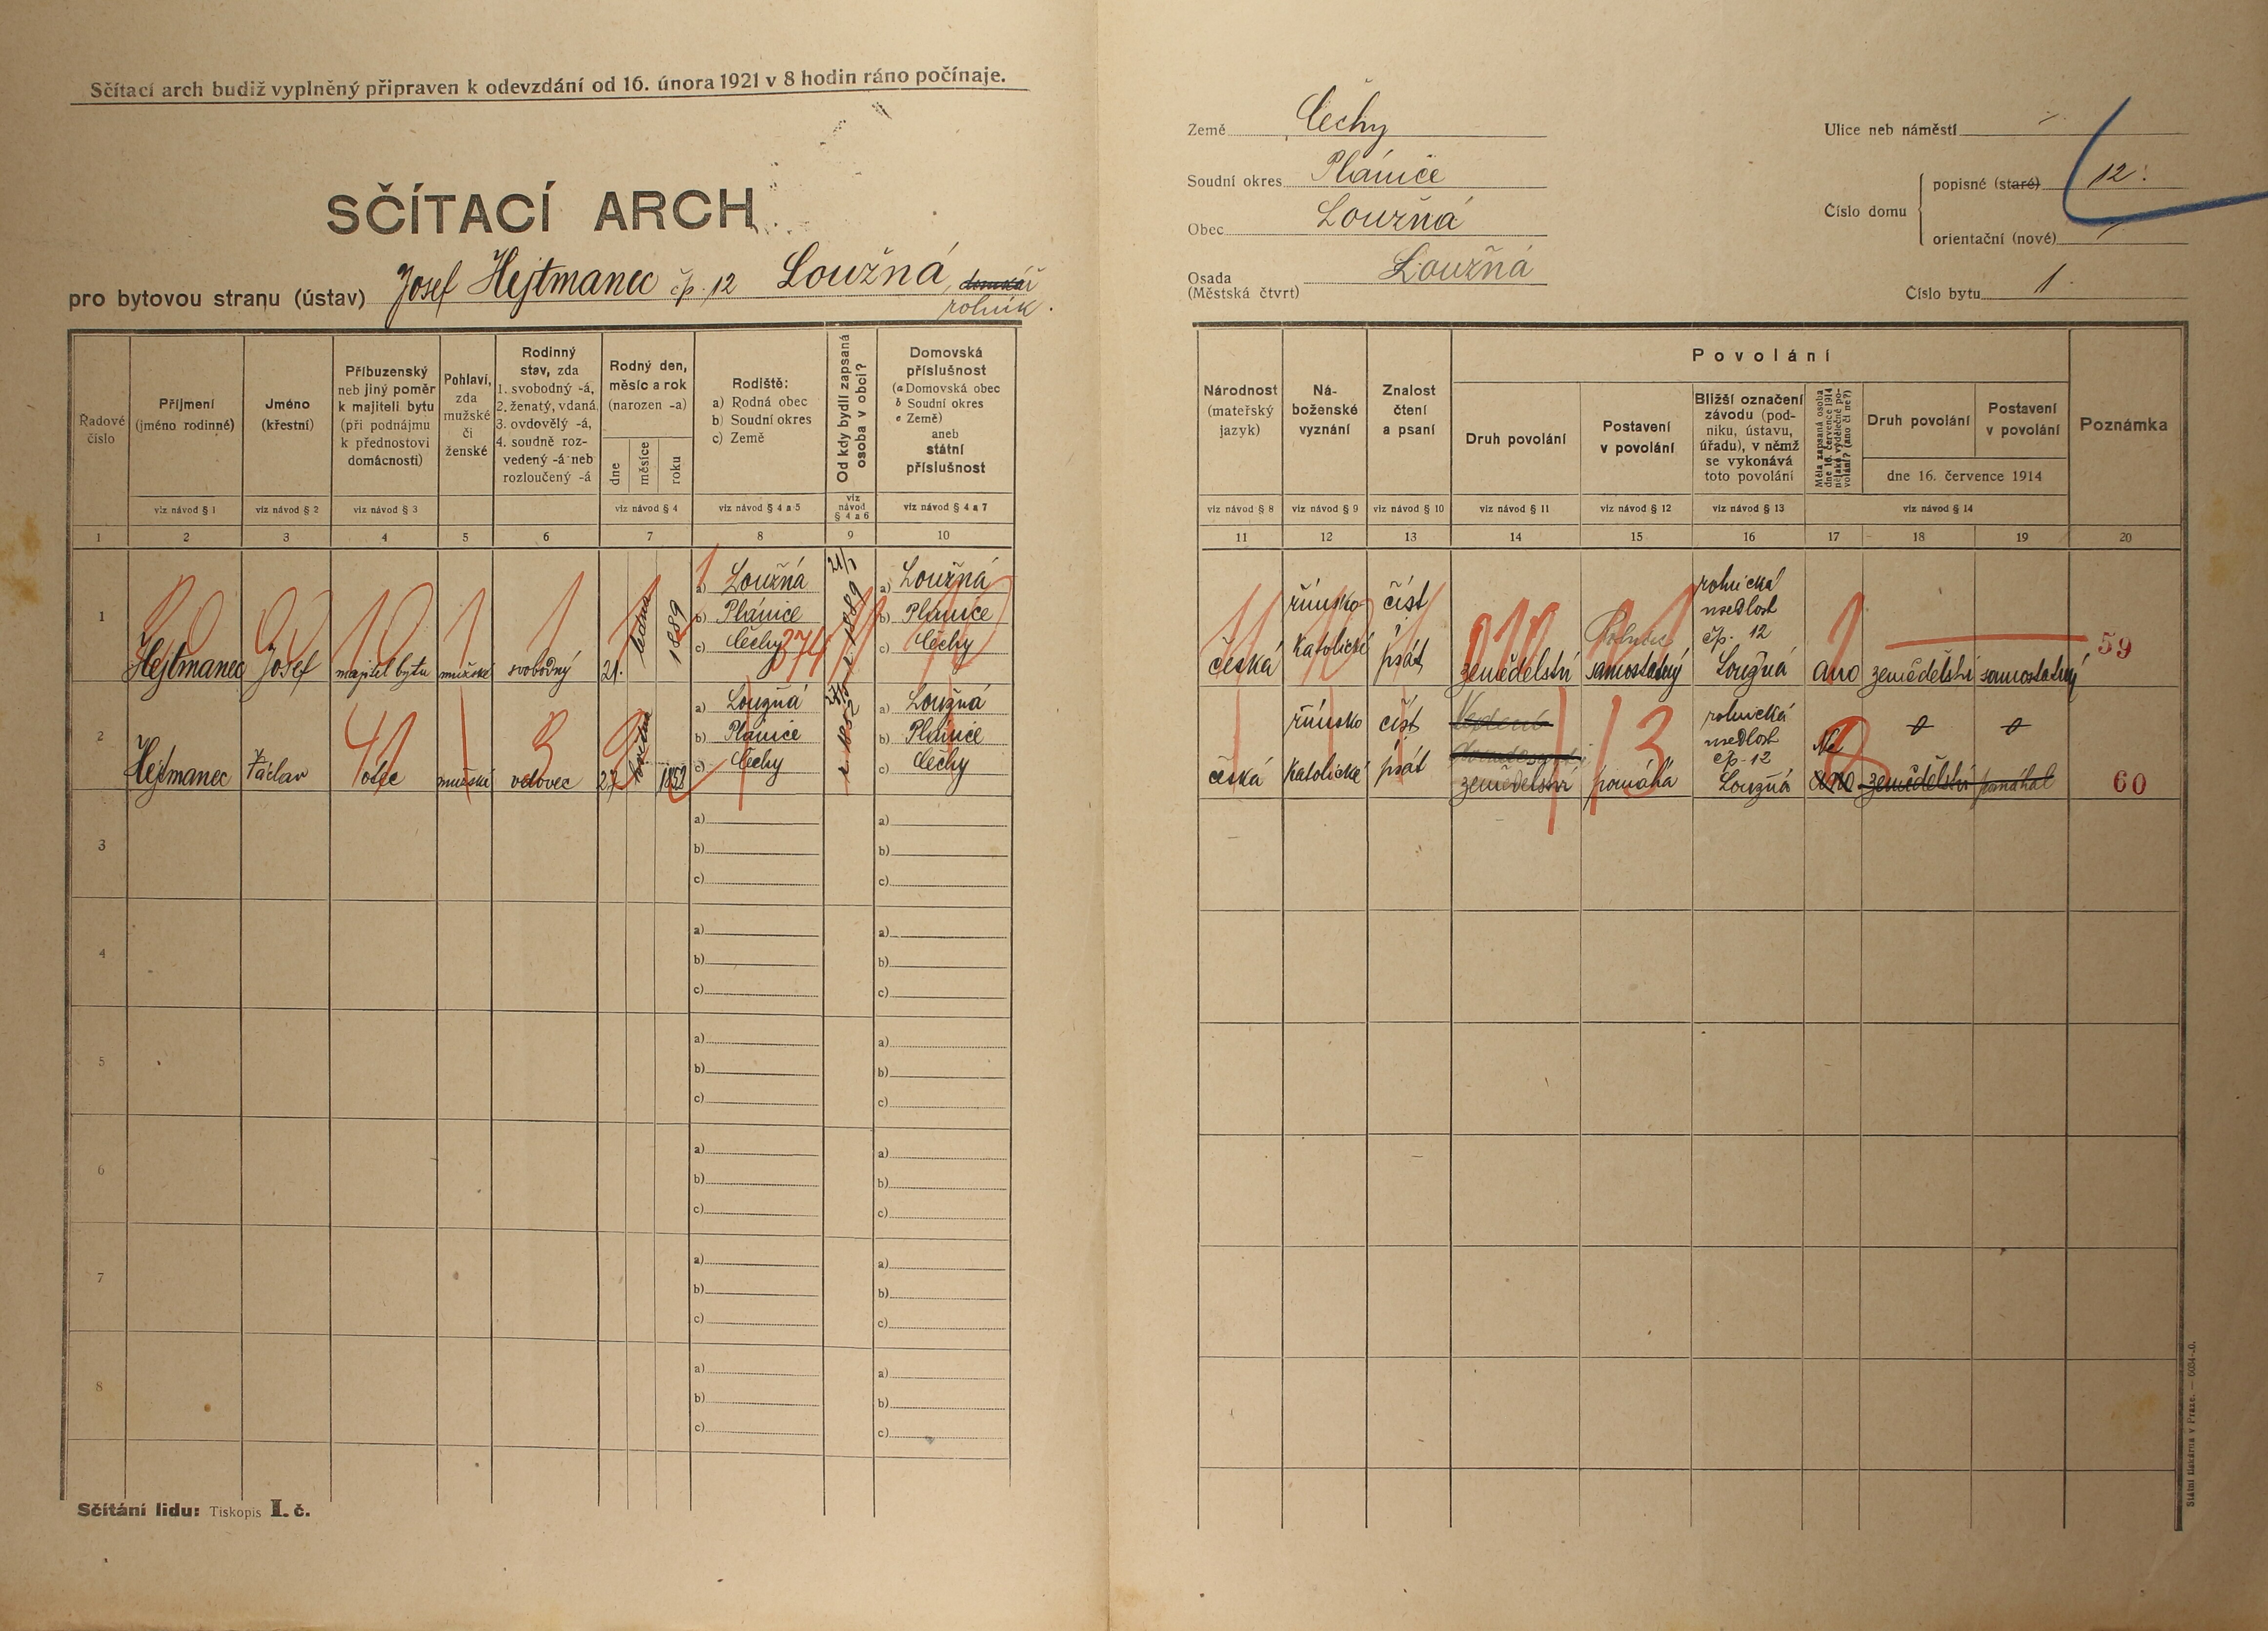 Sčítací arch budiž vyplněný připraven k odevzdání od 16. února 1921 v 8 hodin ráno počínaje.
SČÍTACÍ ARCH
pro bytovou stranu (ústav) Josef Hejtmanec čp. 12 Loužná, domkář
rolník.
Země Čechy
Soudní okres Plánice
Obec Loužná
Osada
(Městská čtvrt) Loužná
Ulice neb náměstí
Číslo domu
popisné (staré) 12.
orientační (nové)
Číslo bytu 1.
Řadové
číslo
Příjmení
(jméno rodinné)
Jméno
(křestní)
Příbuzenský
neb jiný poměr
k majiteli bytu
(při podnájmu
k přednostovi
domácnosti)
Pohlaví,
zda
mužské
či
ženské
Rodinný
stav, zda
1. svobodný -á,
2. ženatý, vdaná,
3. ovdovělý -á,
4. soudně roz-
vedený -á neb
rozloučený -á
Rodný den,
měsíc a rok
(narozen -a)
dne
měsíce
roku
Rodiště:
a) Rodná obec
b) Soudní okres
c) Země
Od kdy bydlí zapsaná
osoba v obci?
Domovská
příslušnost
(a Domovská obec
b Soudní okres
c Země)
aneb
státní
příslušnost
viz návod § 1
viz návod § 2
viz návod § 3
viz návod § 4
viz návod § 4 a 5
viz
návod
§ 4 a 6
viz návod § 4 a 7
1 2 3 4 5 6 7 8 9 10
Národnost
(mateřský
jazyk)
Ná-
boženské
vyznání
Znalost
čtení
a psaní
Povolání
Druh povolání
Postavení
v povolání
Bližší označení
závodu (pod-
niku, ústavu,
úřadu), v němž
se vykonává
toto povolání
Měla zapsaná osoba
dne 16. července 1914
nějaké výdělečné po-
volání? (ano či ne?)
Druh povolání
Postavení
v povolání
dne 16. července 1914
Poznámka
viz návod § 8
viz návod § 9
viz návod § 10
viz návod § 11
viz návod § 12
viz návod § 13
viz návod § 14
11 12 13 14 15 16 17 18 19 20
1
Hejtmanec
Josef
majitel bytu
mužské
svobodný
21.
ledna
1889
a) Loužná
b) Plánice
c) Čechy
374
21/1
1889
a) Loužná
b) Plánice
c) Čechy
česká
římsko-
katolické
číst
psát
zemědelství
Rolník
samostatný
rolnická
usedlost
čp. 12
Loužná
Ano
zemědělství
samostatný
59
2
Hejtmanec
Václav
otec
mužské
vdovec
27
1852
a) Loužná
b) Plánice
c) Čechy
a) Loužná
b) Plánice
c) Čechy
česká
římsko
katolické
číst
psát
zemědelství
pomáhá
13
rolnická
usedlost
čp. 12
Loužná
Ne
ano
0
zemědělství
0
pomáhal
60
3
a) b) c)
a) b) c)
4
a) b) c)
a) b) c)
5
a) b) c)
a) b) c)
6
a) b) c)
a) b) c)
7
a) b) c)
a) b) c)
8
a) b) c)
a) b) c)
Sčítání lidu: Tiskopis I. č.